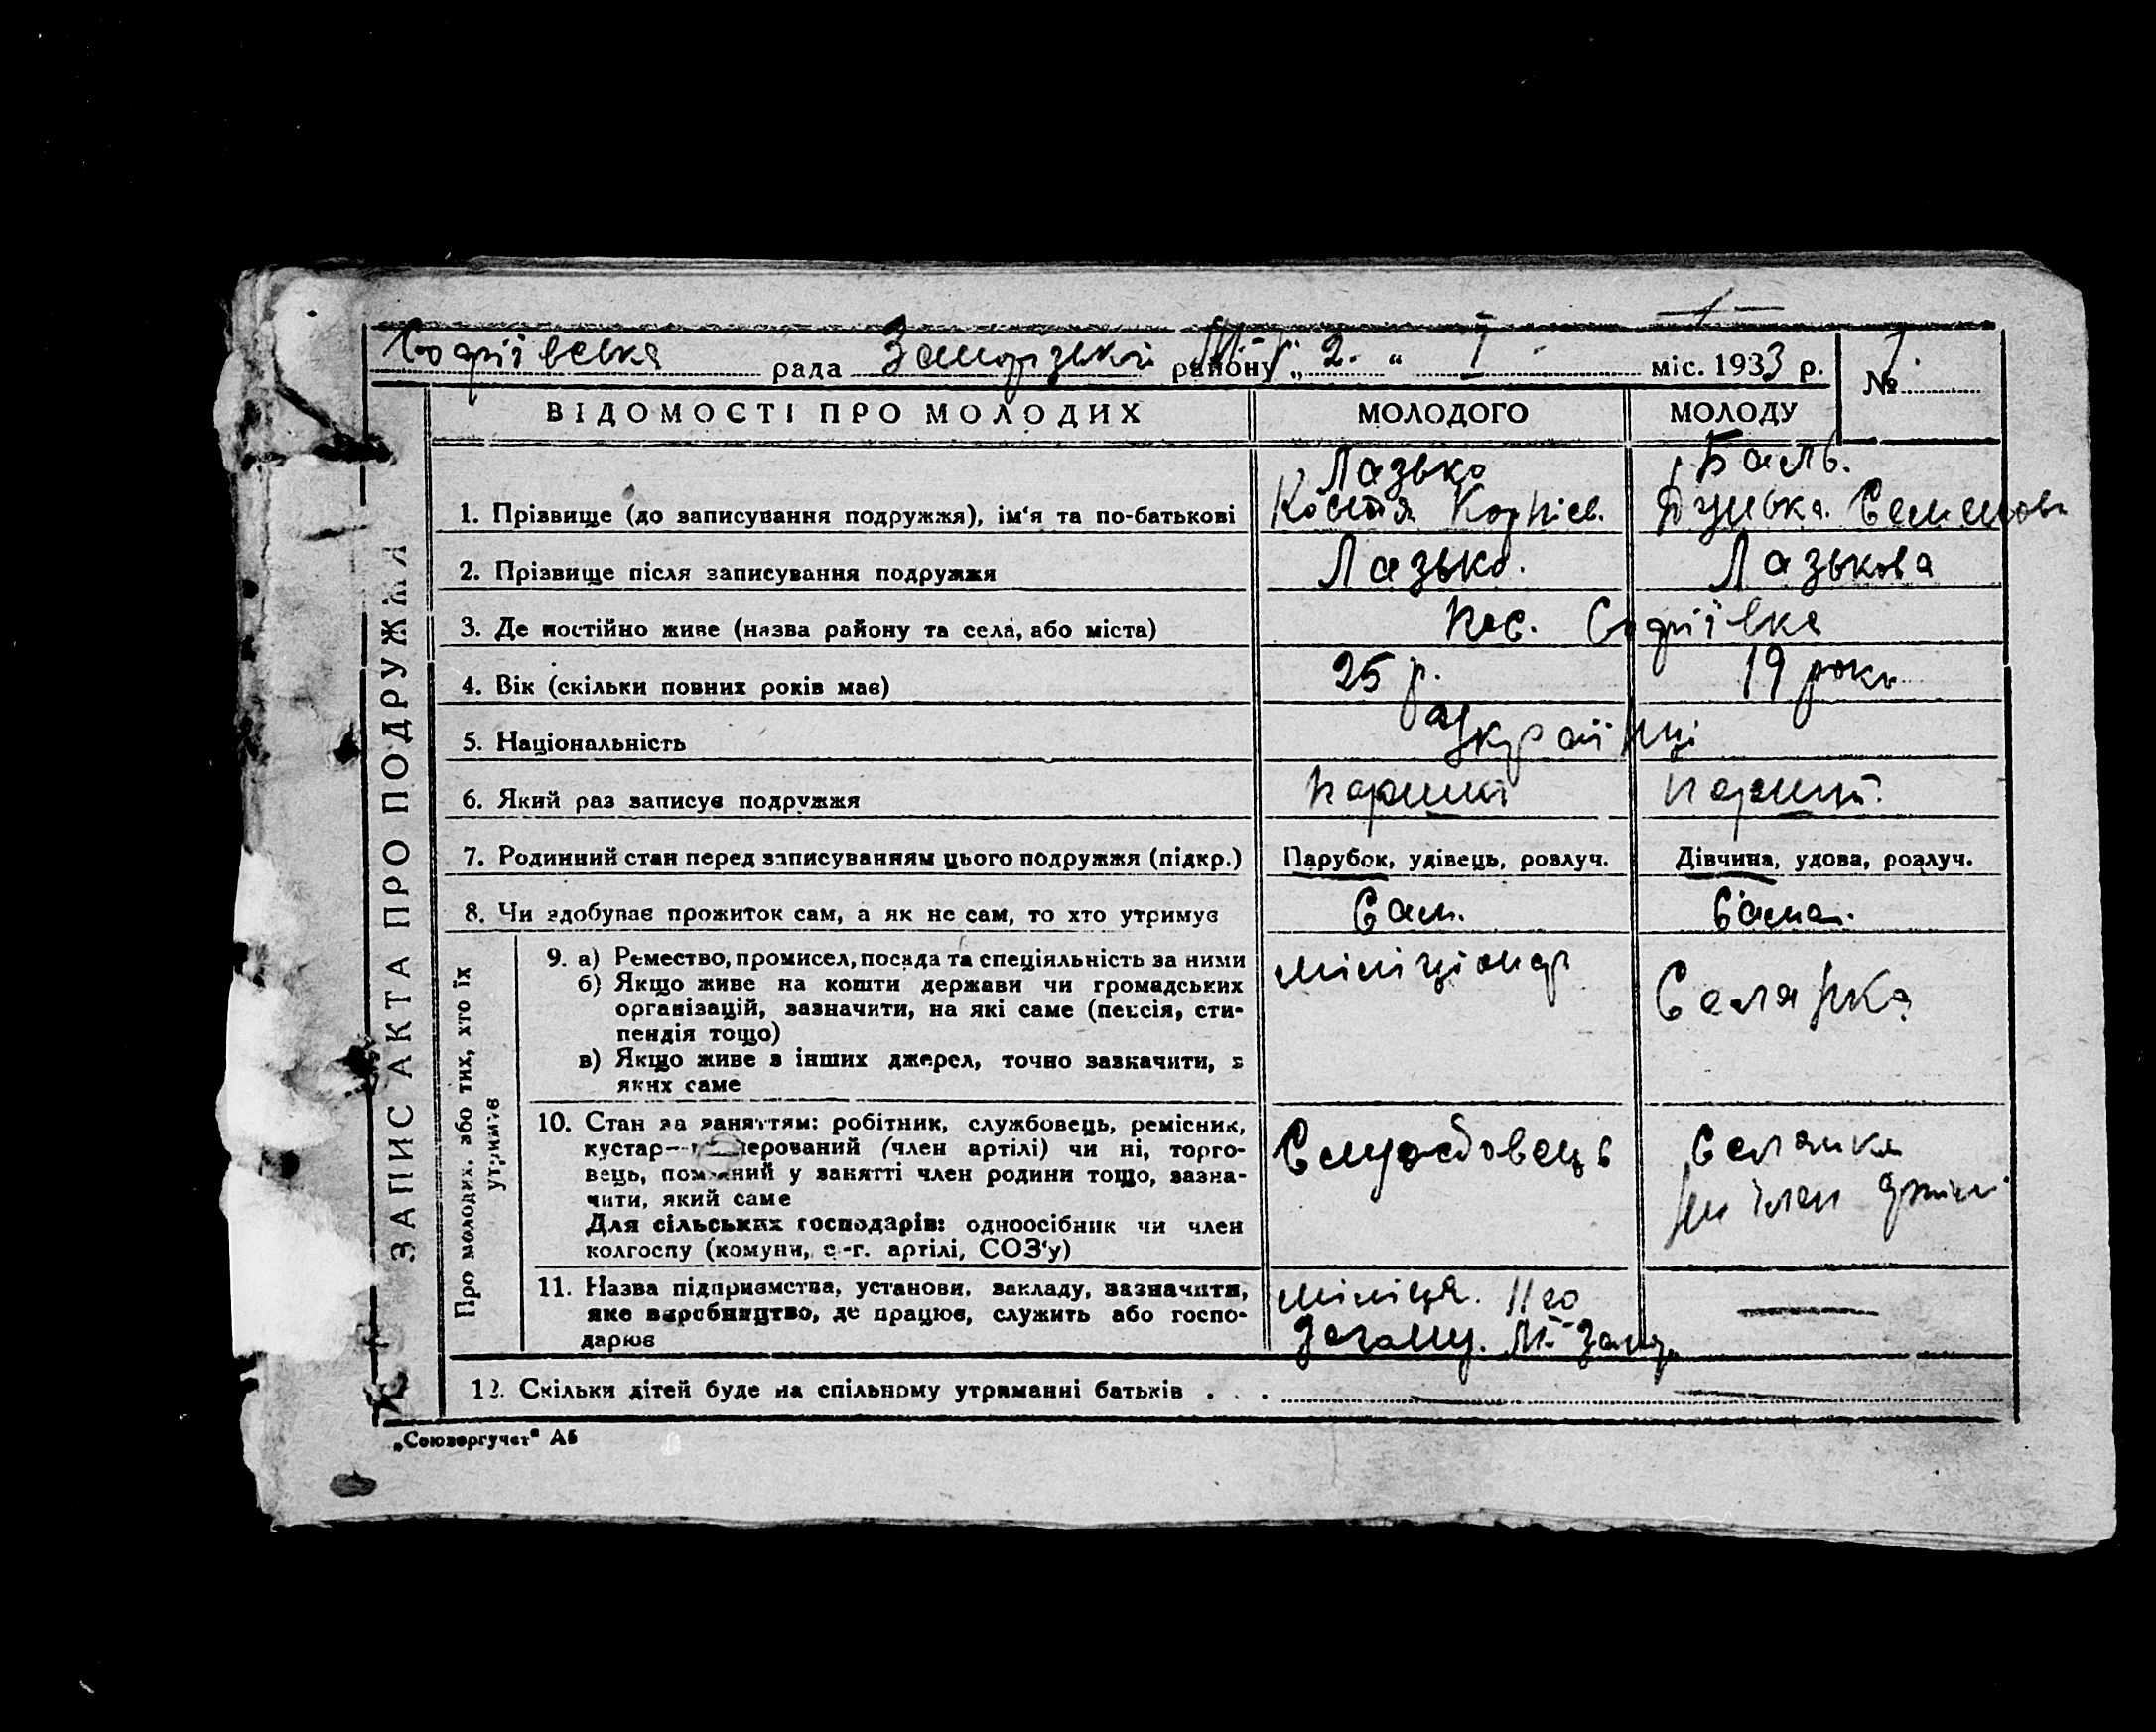 Софіївська рада Запорізької району „ 2. “ I міс. 1933 р. № 1.
ВІДОМОСТІ ПРО МОЛОДИХ МОЛОДОГО МОЛОДУ
Лазько Баль.
1. Прізвище (до записування подружжя), ім‘я та по-батькові Костя Корнієв. Дунька. Семенова
2. Прізвище після записування подружжя Лазько. Лазькова
3. Де постійно живе (назва району та села, або міста) пос. Софіївка
4. Вік (скільки повних років має) 25 р. 19 роки
5. Національність Українці
6. Який раз записує подружжя перший перший.
7. Родинний стан перед записуванням цього подружжя (підкр.) Парубок, удівець, розлуч. Дівчина, удова, розлуч.
8. Чи здобуває прожиток сам, а як не сам, то хто утримує Сам. Сама.
ЗАПИС АКТА ПРО ПОДРУЖЖЯ
Про молодих, або тих, хто їх
утримує
9. а) Ремество, промисел, посада та спеціяльність за ними міліціонер
б) Якщо живе на кошти держави чи громадських Селянка
організацій, зазначити, на які саме (пенсія, сти-
пендія тощо)
в) Якщо живе з інших джерел, точно зазначити, з
яких саме
10. Стан за заняттям: робітник, службовець, ремісник, Службовець Селянка
кустар— кооперований (член артілі) чи ні, торго-
вець, помічний у занятті член родини тощо, зазна- член
чити, який саме
Для сільських господарів: одноосібник чи член
колгоспу (комуни, с.-г. артілі, СОЗ‘у)
11. Назва підприємства, установи, закладу, зазначити, міліція. 11го
яке виробництво, де працює, служить або госпо-
дарює
12. Скільки дітей буде на спільному утриманні батьків . . .
„Союзоргучет“ А5